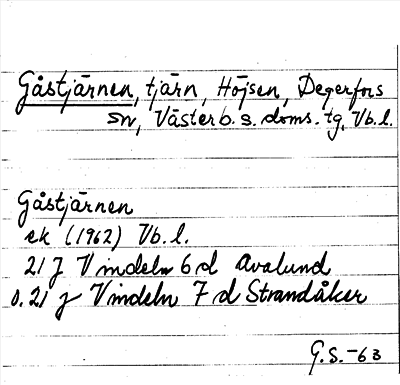 Gåstjärnen, tjärn, Höjsen, Degerfors
sn, Västerb. s. doms. tg, Vb.l.
Gåstjärnen
ek (1962) Vb.l.
21 J Vindeln 6 d Avalund
o. 21 J Vindeln 7 d Strandåker
G.S.-63